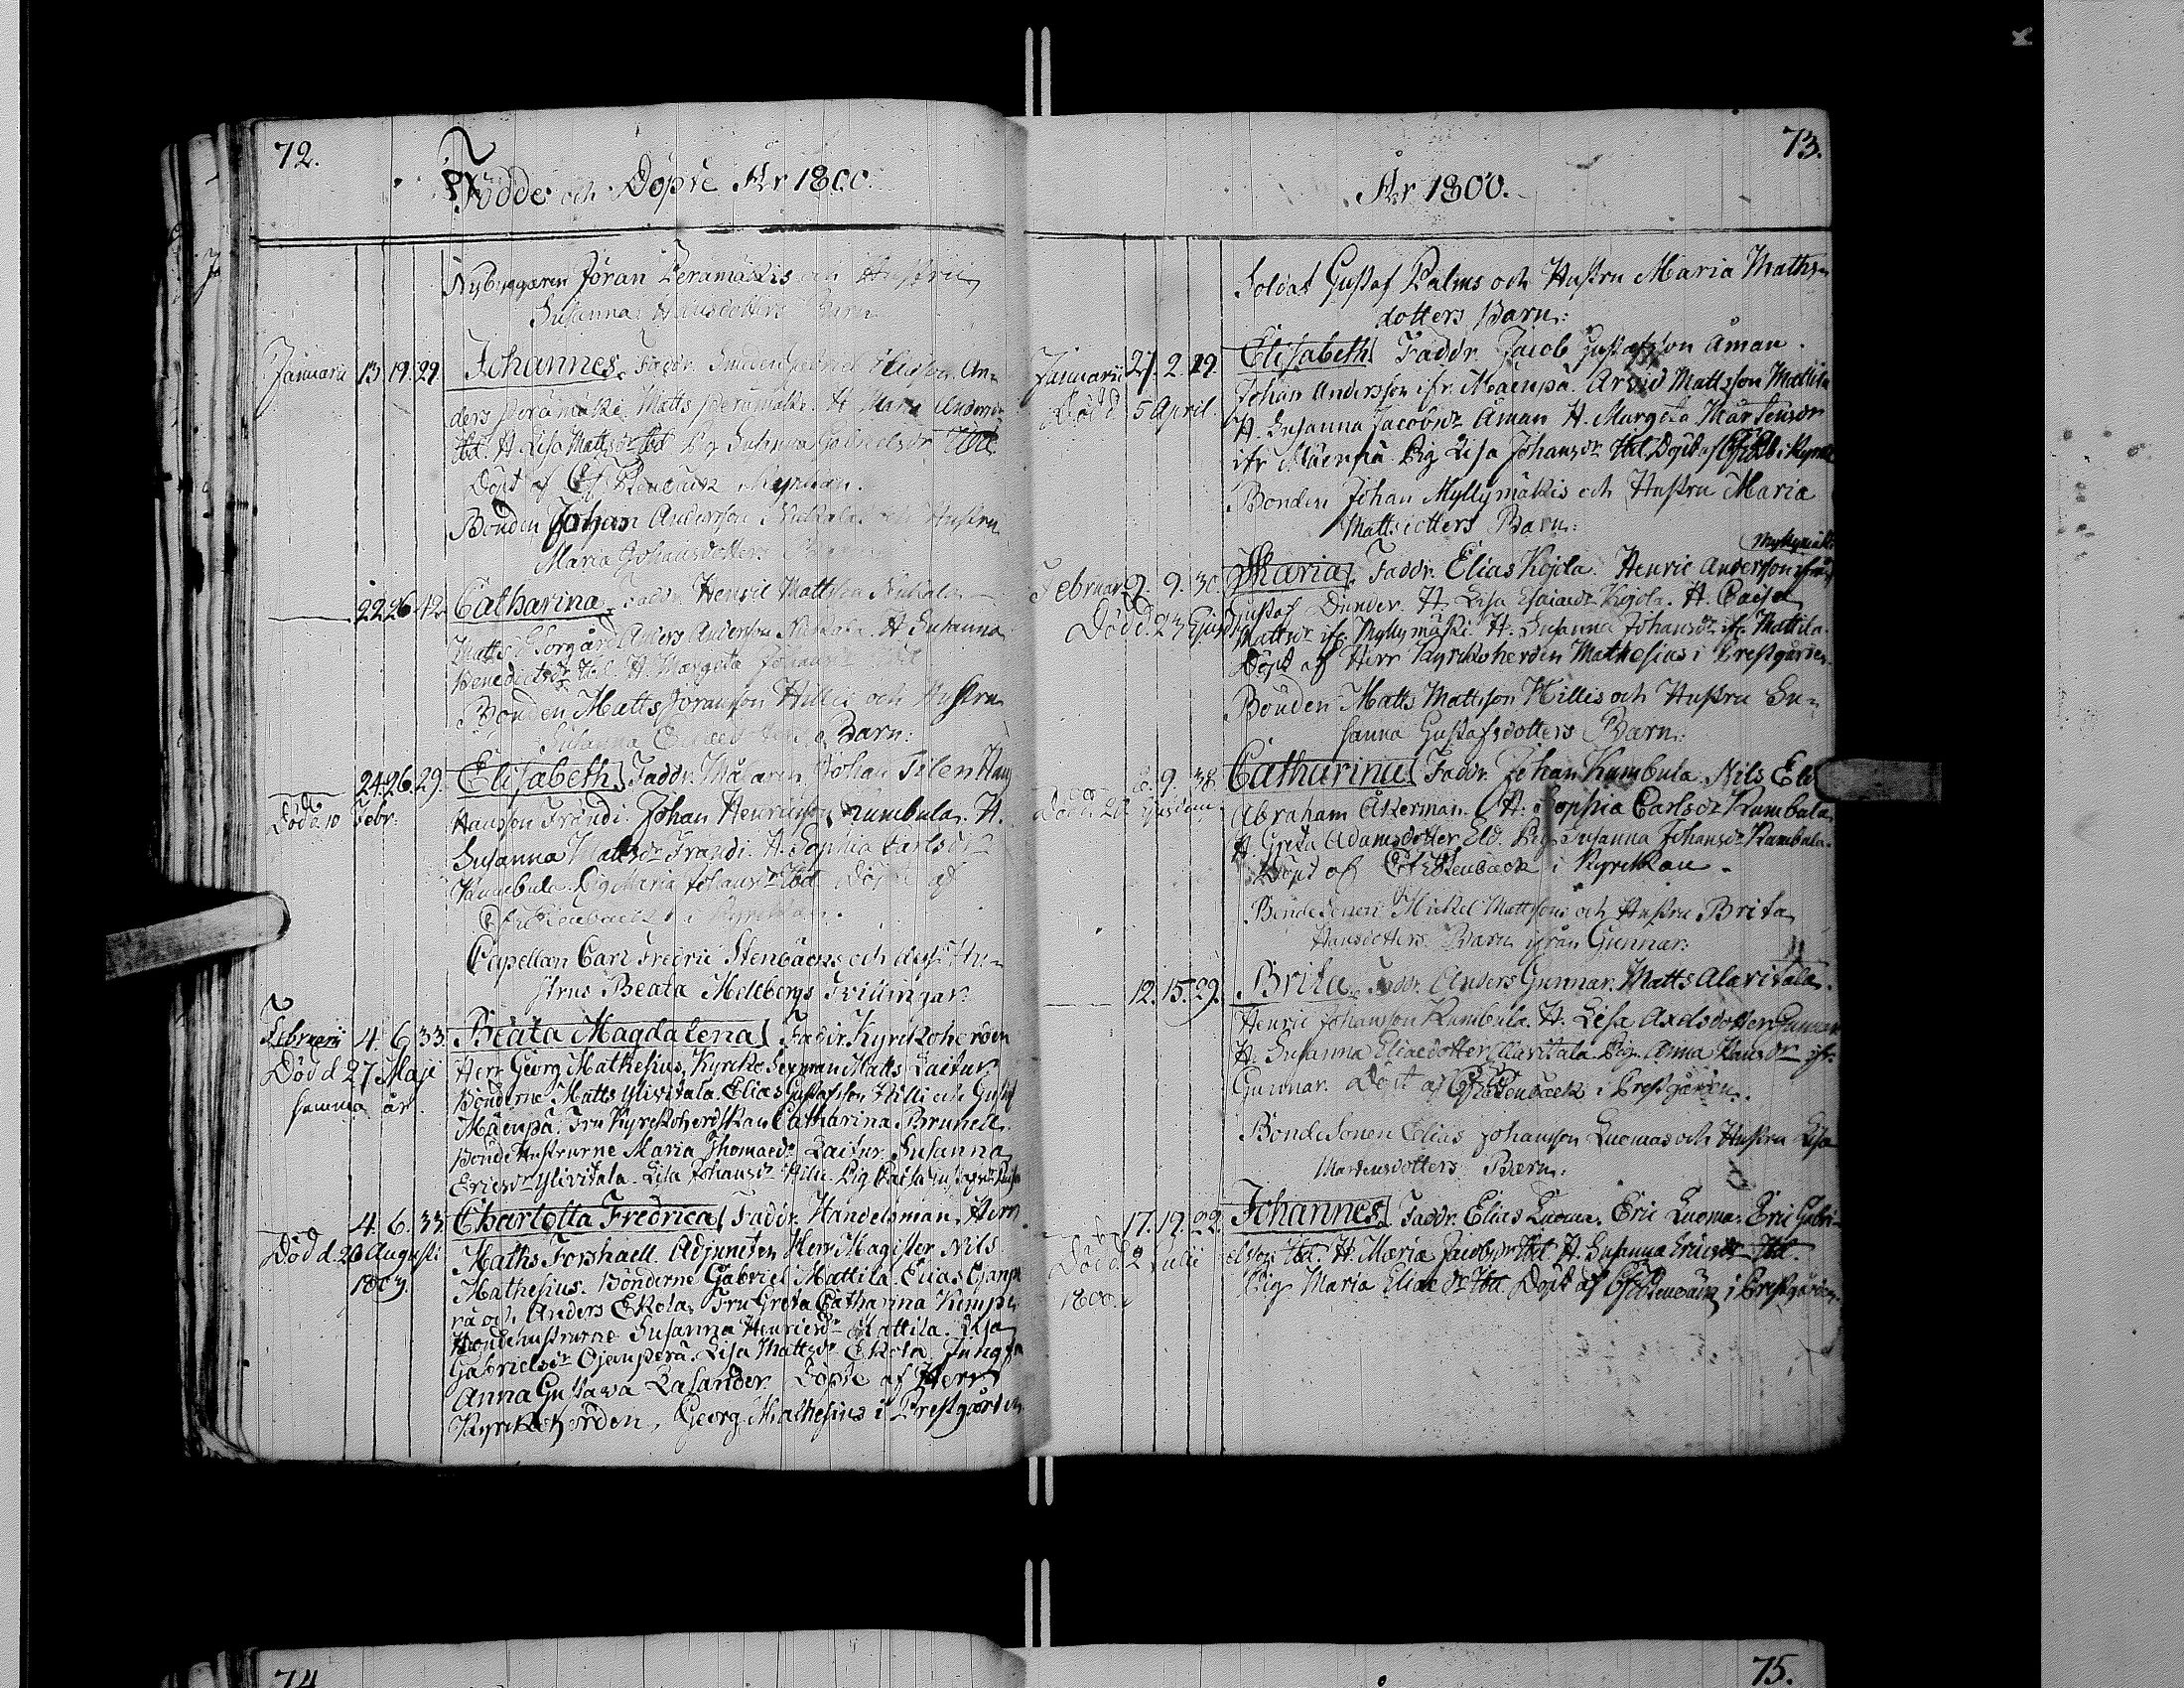 72.
Födde och Döpte År 1800.
Nybyggaren Jöran Perämäkis och Hustru
Susanna Eliædotters Barn
Januarii 13. 19. 29. Johannes. Faddr. Gabriel An-
ders Perämäki. Matts Perämäki. H. Maria Andersdr
Ibd. H. Lisa Mattsdr Ibd. Pig Susanna Gabrielsdr Ibd.
Döpt af CFStenbäck i Kyrckan.
Bonden Johan Andersson och Hustru
Maria Johansdotters Barn
22. 26. 42. Catharina. Faddr. Henric Mattsson
Matts Anders Andersson H. Susanna
Benedictsdr Ibd. H. Margeta Johansdr Ibd
Bonden Matts Jöransson Hillis och Hustru
Susanna Barn:
24. 26. 29. Elisabeth. Faddr. Målaren Johan Tilen Hans
Död d. 10 Febr:
Hansson Frändi. Johan Henricsson Kumbula. H.
Susanna Mattsdr Frändi. H. Sophia Carlsdr
Kumbula. Pig Maria Johansdr Ibd. Döpt af
CFStenbäck i Kyrckan.
Capellan Carl Fredric Stenbäcks och dess Hu-
strus Beata Mellbergs Tvillingar:
Februarii 4. 6. 33. Beata Magdalena. Faddr. Kyrckoherden
Död d 27 Maji
samma år.
Herr Georg Mathesius, Kyrcko Sexman Matts Laitur.
Bönderne Matts Ylivitala. Elias Gustafsson Hilli och Gustaf
Mäenpä. Fru Kyrckoherdskan Catharina Brunell.
Bondehustrurne Maria Thomædr Laitur. Susanna
Ericsdr Ylivitala. Lisa Johansdr Hilli. Pig Caisa
4. 6. 33. Charlotta Fredrica. Faddr. Handelsman Herr
Död d. 26 Augusti
1803.
Maths Forshaell. Adjuncten Herr Magister Nils
Mathesius. Bönderne Gabriel Mattila. Elias Ojanpe
rä och Anders Ekola. Fru Greta Catharina Kempe
Bondehustrurne Susanna Henricsdr Mattila. Lisa
Gabrielsdr Ojanperä. Lisa Mattsdr Ekola. Jungfr
Anna Gustava Lasander. Döpte af Herr
Kyrckoherden, Georg Mathesius i Prestgården
73.
År 1800.
Soldat Gustaf Palms och Hustru Maria Maths-
dotters Barn:
Januarii 27. 2. 29. Elisabeth. Faddr. Jacob Gustafsson Åman.
Död d. 5 April.
Johan Andersson ifr. Mäenpä. Arvid Mattsson Mattila
H. Susanna Jacobsdr Åman H. Margeta Mårtensdr
ifr Mäenpä. Pig Lisa Johansdr Ibd. Döpt af CFStb: i Kyrck
Bonden Johan Myllymäkis och Hustru Maria
Mattsdotters Barn:
Februar 2. 9. 30. Maria. Faddr. Elias Kojola. Henric Andersson ifrån Myllymäki
Död d. 23 Ejusd
Gustaf Dunder. H. Lisa Esaiædr Kojola. H. Caisa
Mattsdr ifr. Myllymäki. H. Susanna Johansdr ifr. Mattila.
Döpt af Herr Kyrckoherden Mathesius i Prestgården.
Bonden Matts Mattsson Hillis och Hustru Su-
sanna Gustafsdotters Barn:
8. 9. 38. Catharina. Faddr. Johan Kumbula. Nils Eld
Abraham Åkerman. H. Sophia Carlsdr Kumbula.
H. Greta Adamsdotter Eld. Pig Susanna Johansdr Kumbula.
Döpt af CFStenbäck i Kyrckan.
Bondesonen Mickel Mattssons och Hustru Brita
Hansdotters Barn ifrån Gunnar:
12. 15. 29. Brita. Faddr. Anders Gunnar. Matts Alavitala.
Henric Johansson Kumbula. H. Lisa Axelsdotter Gunnar
H. Susanna Eliædotter Alavitala. Pig. Anna Hansdr ifr.
Gunnar. Döpt af CFStenbäck i Prestgården.
Bondesonen Elias Johansson Luomas och Hustru Lisa
Mårtensdotters Barn:
17. 19. 22. Johannes. Faddr. Elias Luoma. Eric Luoma. Eric Gabri-
Död d. 2 Julii
1800.
elsson Ibd. H. Maria Jacobsdr Ibd. H. Susanna Ericsdr Ibd.
Pig Maria Eliædr Ibd. Döpt af CFStenbäck i Prestgården.
74
75.